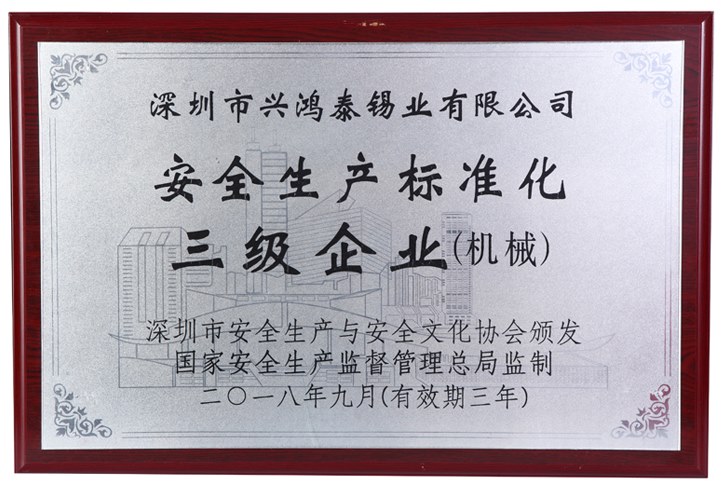 深圳市兴鸿泰锡业有限公司
安全生产标准化
三级企业(机械)
深圳市安全生产与安全文化协会颁发
国家安全生产监督管理总局监制
二〇一八年九月(有效期三年)